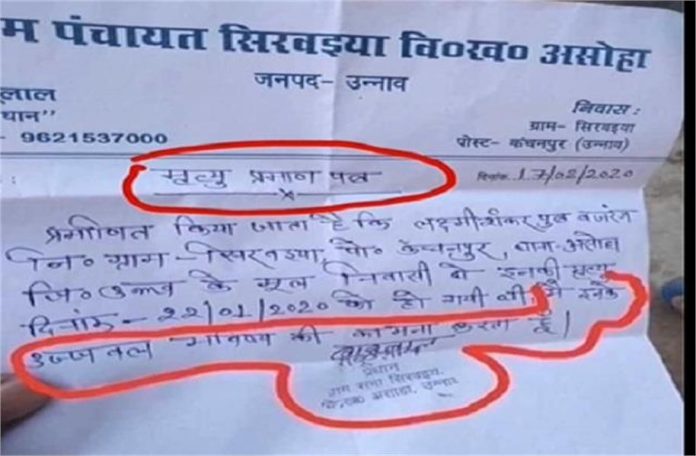 म पंचायत सिरवइया वि०ख० असोहा
जनपद- उन्नाव
लाल
धान"
- 9621537000
निवास :
ग्राम- सिरवइया
पोस्ट- कंचनपुर (उन्नाव)
मृत्यु प्रमाण पत्र
दिनांक 17/02/2020
प्रमाणित किया जाता है कि लक्ष्मीशंकर पुत्र बजरंग
नि० ग्राम- सिरवइया, पो० कंचनपुर, थाना- असोहा
जि० उन्नाव के मूल निवासी थे इनकी मृत्यु
दिनांक- 22/01/2020 को हो गयी थी मै इनके
उज्जवल भविष्य की कामना करता हूँ।
प्रधान
ग्राम सभा सिरवइया,
वि.ख० असोहा, उन्नाव